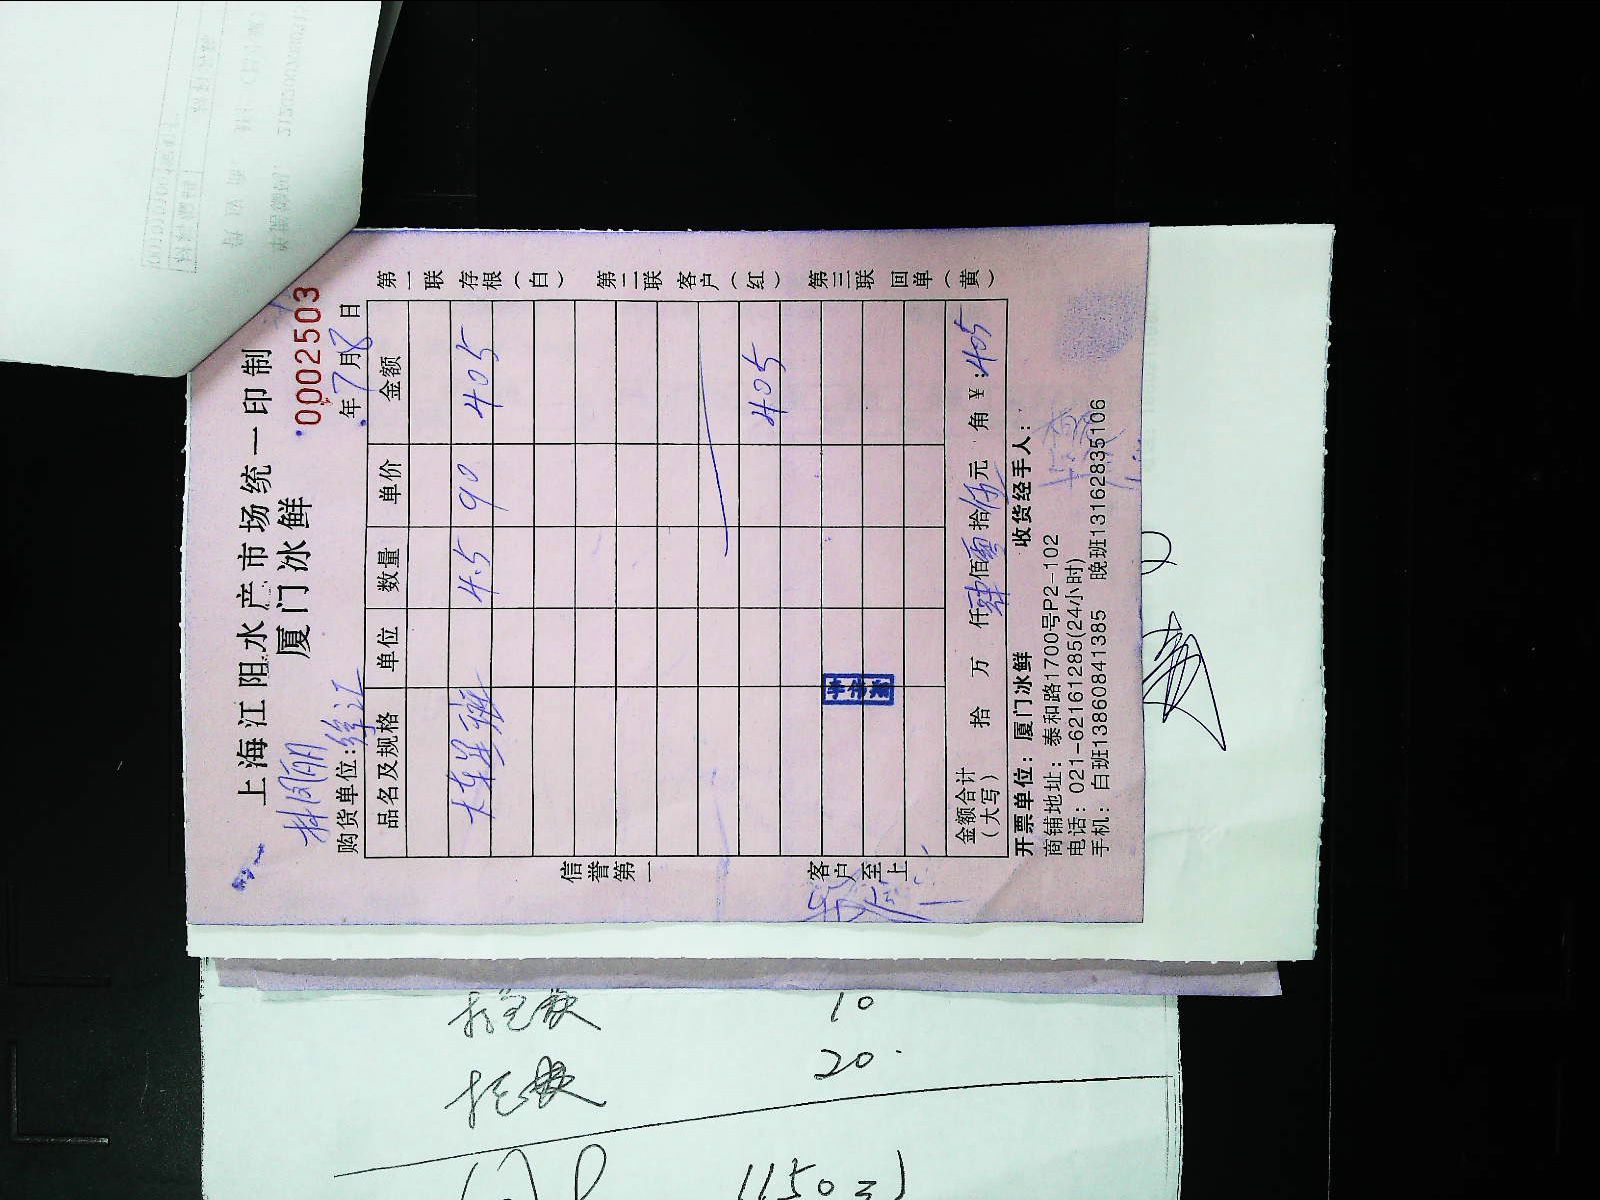 上海江阳水产市场统一印制
厦门冰鲜
0002503
购货单位:
年7月8日
品名及规格 单位 数量 单价 金额
大东星斑 4.5 90 405
405
金额合计(大写) 拾 万 仟肆佰零拾伍元 角 ¥:405
开票单位:厦门冰鲜 收货经手人:
商铺地址:泰和路1700号P2-102
电话:021-62161285(24小时)
手机:白班13860841385 晚班13162835106
信誉第一 客户至上
第一联 存根(白) 第二联 客户(红) 第三联 回单(黄)
10
20